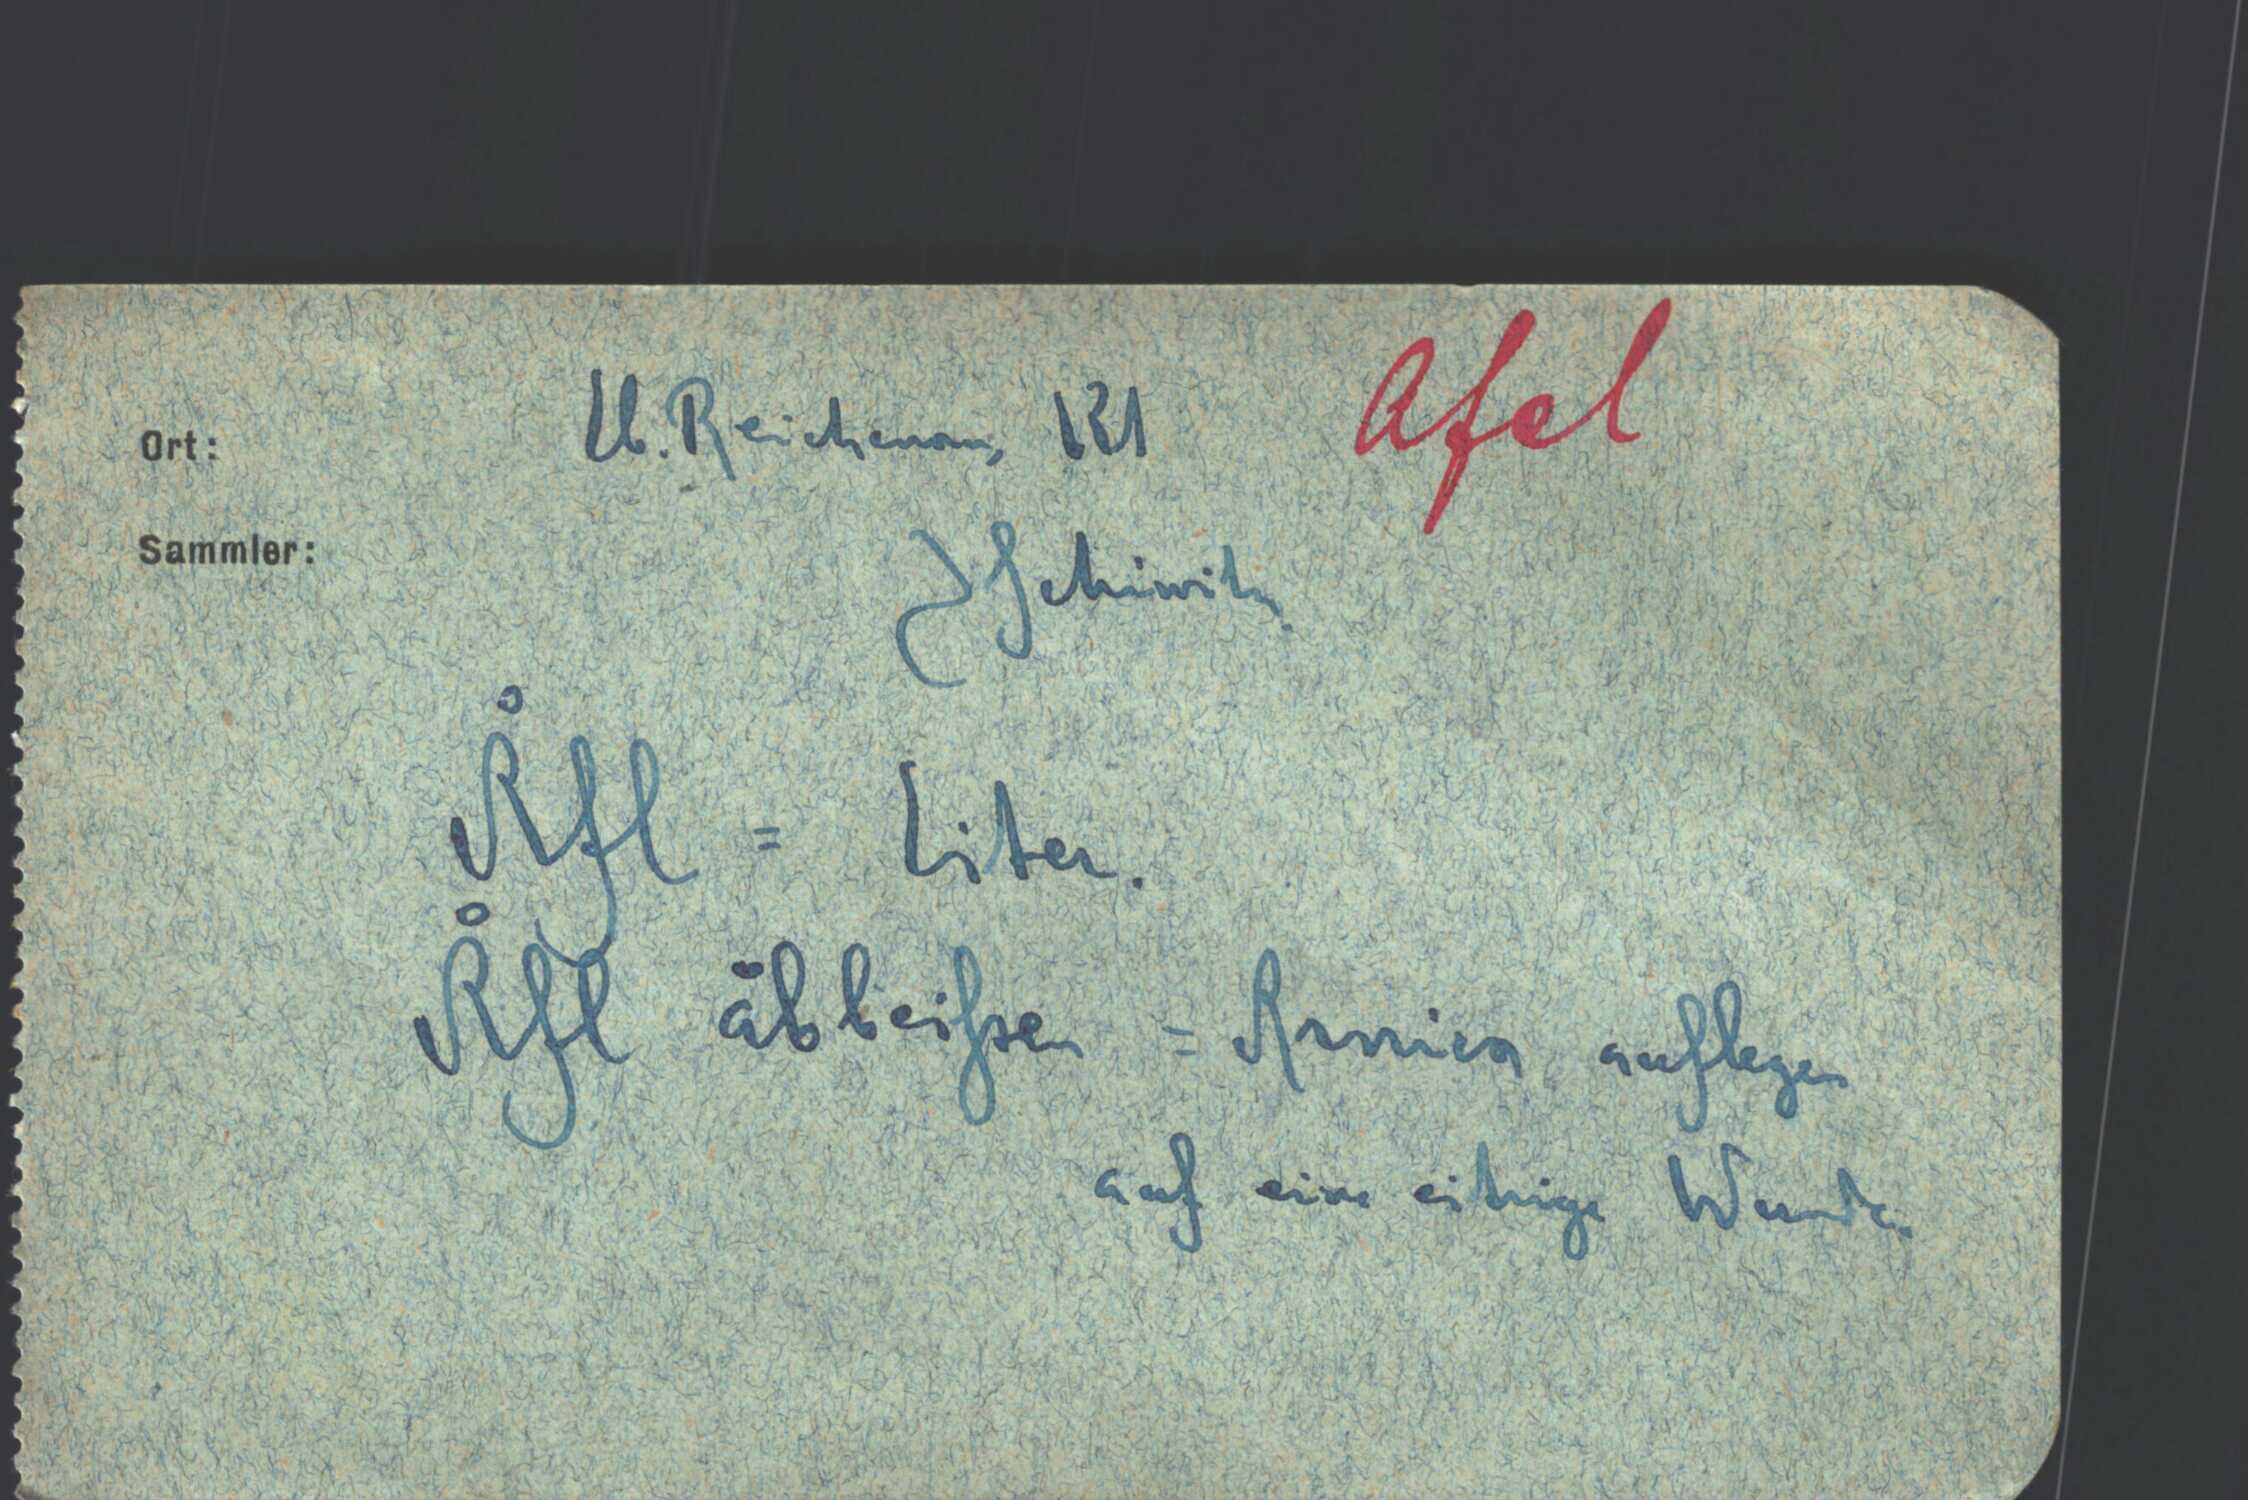 Ort: U. Reichenau, Kl Afel
Sammler: J Schiwitz
Åfl = Liter.
Åfl åbbeißen = Arnica auflegen
auf eine eitrige Wunde.